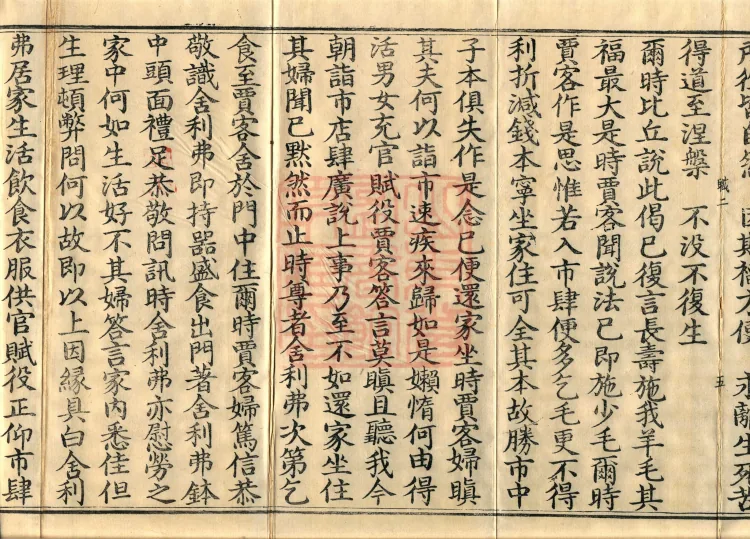 因其福力便 永離生死苦
得道至涅槃 不没不復生
爾時比丘說此偈已復言長壽施我羊毛其
福最大是時賈客聞說法已即施少毛爾時
賈客作是思惟若入市肆便多乞毛更不得
利折減錢本寧坐家住可全其本故勝市中
職二 五
子本俱失作是念已便還家坐時賈客婦瞋
其夫何以詣市速疾來歸如是嬾惰何由得
活男女充官賦役賈客答言莫瞋且聽我今
朝詣市店肆廣說上事乃至不如還家坐住
其婦聞已默然而止時尊者舍利弗次第乞
食至賈客舍於門中住爾時賈客婦篤信恭
敬識舍利弗即持器盛食出門著舍利弗鉢
中頭面禮足恭敬問訊時舍利弗亦慰勞之
家中何如生活好不其婦答言家內悉佳但
生理頓弊問何以故即以上因緣具白舍利
弗居家生活飲食衣服供官賦役正仰市肆